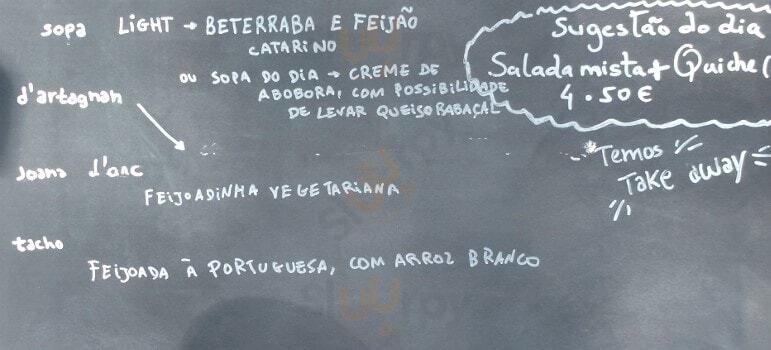 sopa LIGHT → BETERRABA E FEIJÃO
CATARINO
OU SOPA DO DIA → CREME DE
ABOBORA, COM POSSIBILIDADE
DE LEVAR QUEIJO RABAÇAL
d'artagnan
Joana d'arc
FEIJOADINHA VEGETARIANA
tacho
FEIJOADA À PORTUGUESA, COM ARROZ BRANCO
Sugestão do dia
Salada mista + Quiche
4.50€
Temos
Take away